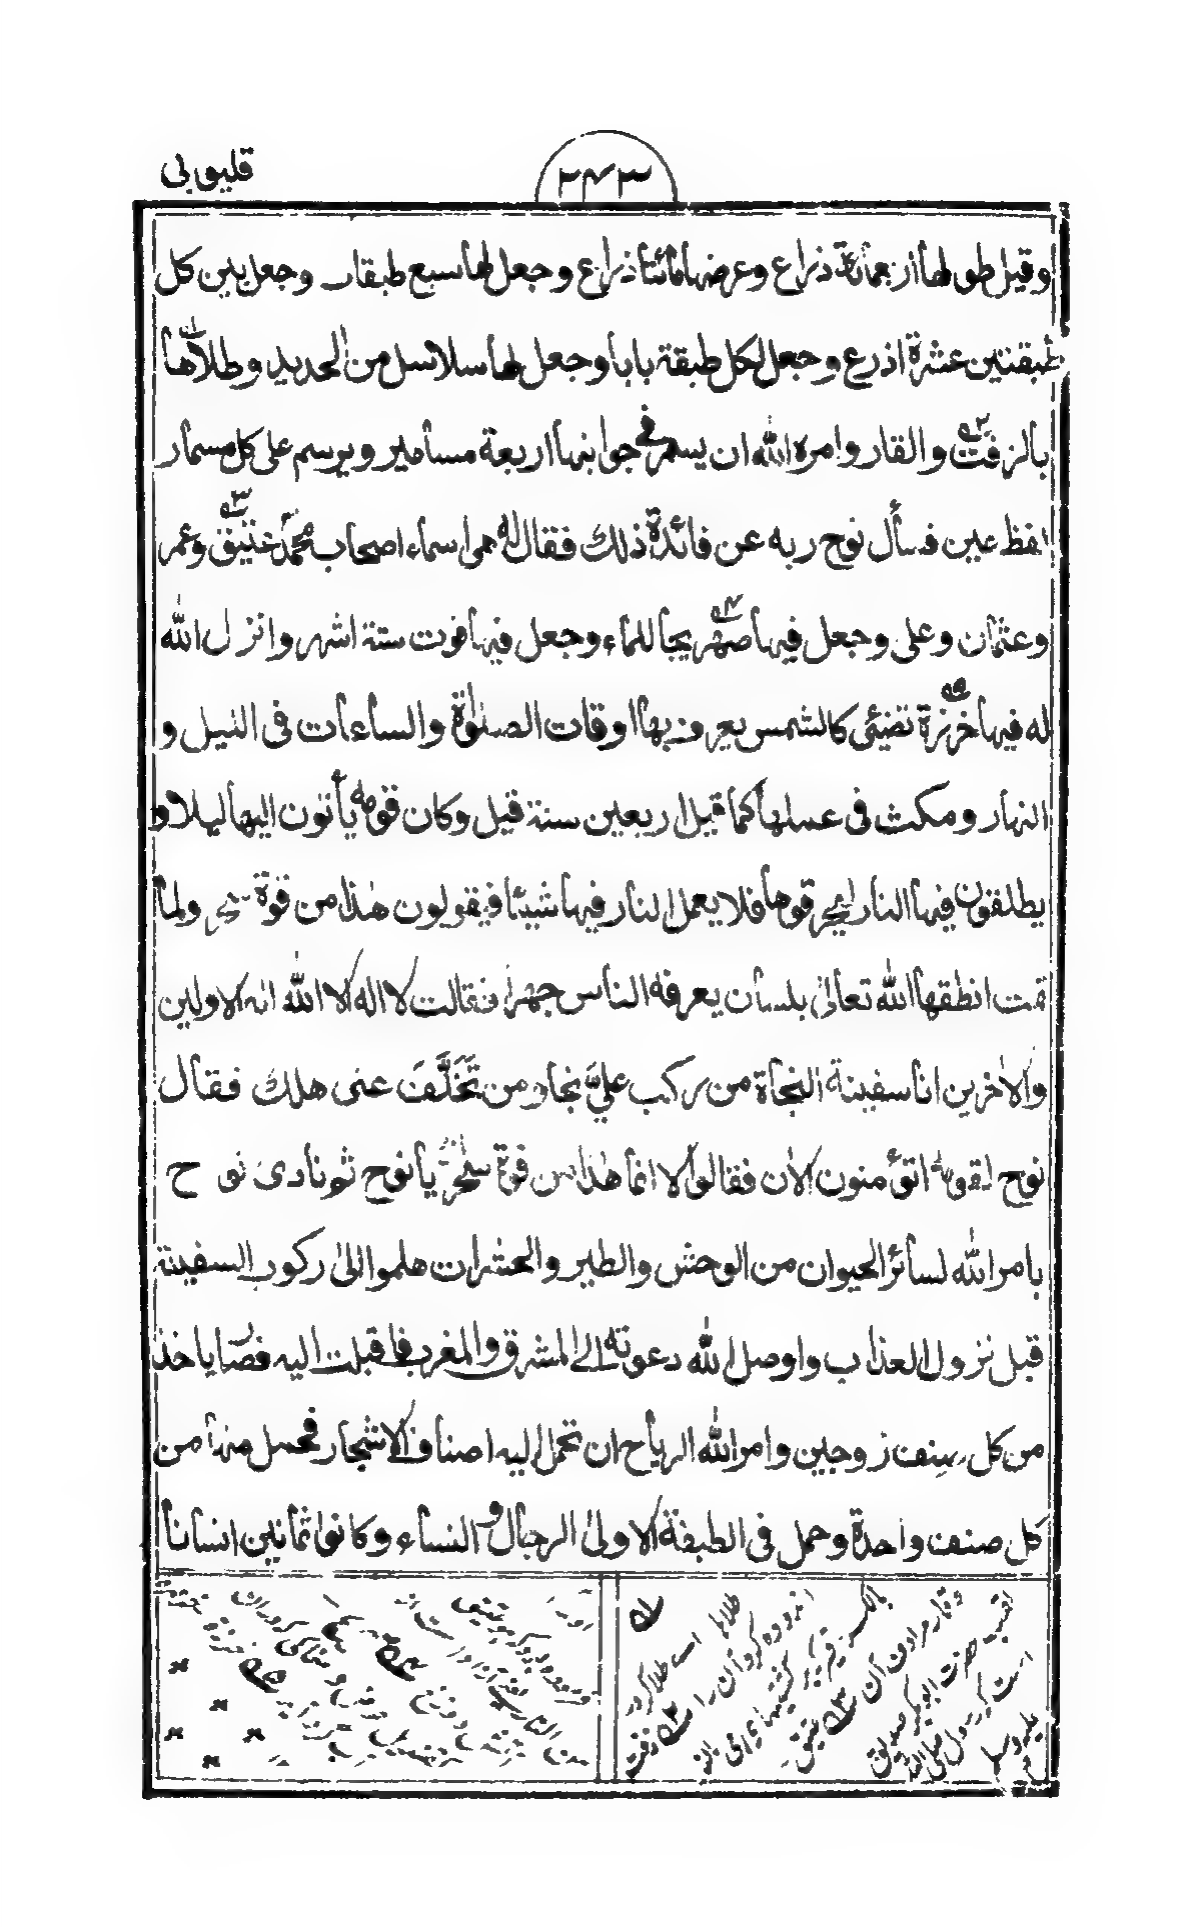 قليوبى
٢٤٣
وقيل طولها اربعمائة ذراع وعرضها مائتا ذراع وجعل لها سبع طبقات وجعل بين كل
طبقتين عشرة اذرع وجعل لكل طبقة بابا وجعل لها سلاسل من الحديد وطلاها
بالزفت والقار وامره الله ان يسمر فى جوانبها اربعة مسامير ويرسم على كل مسمار
لفظ عين فسأل نوح ربه عن فائدة ذلك فقال له هى اسماء اصحاب محمد عتيق وعمر
وعثمان وعلى وجعل فيها صهريجا للماء وجعل فيها قوت ستة اشهر وانزل الله
له فيها خرزة تضيئى كالشمس يعرف بها اوقات الصلوٰة والساعات فى الليل و
النهار ومكث فى عملها كما قيل اربعين سنة قيل وكان قومه يأتون اليها ليلا و
يطلقون فيها النار ليحرقوها فلا يعمل النار فيها شيئا فيقولون هٰذا من قوة سحره ولما
تمت انطقها الله تعالىٰ بلسان يعرفه الناس جهرا فقالت لا اله الا الله اله الاولين
والاٰخرين انا سفينة النجاة من ركب علىَّ نجا ومن تَخَلَّفَ عنى هلك فقال
نوح لقومه اتؤمنون الاٰن فقالوا لا انما هٰذا من قوة سحرك يا نوح ثم نادى نوح
بامر الله لسائر الحيوان من الوحش والطير والحشرات هلموا الىٰ ركوب السفينة
قبل نزول العذاب واوصل الله دعوته الى المشرق والمغرب فاقبلت اليه فصار ياخذ
من كل صنف زوجين وامر الله الرياح ان تحمل اليه اصناف الاشجار فحمل منها من
كل صنف واحدة وحمل فى الطبقة الاولىٰ الرجال و النساء وكانوا ثمانين انسانا